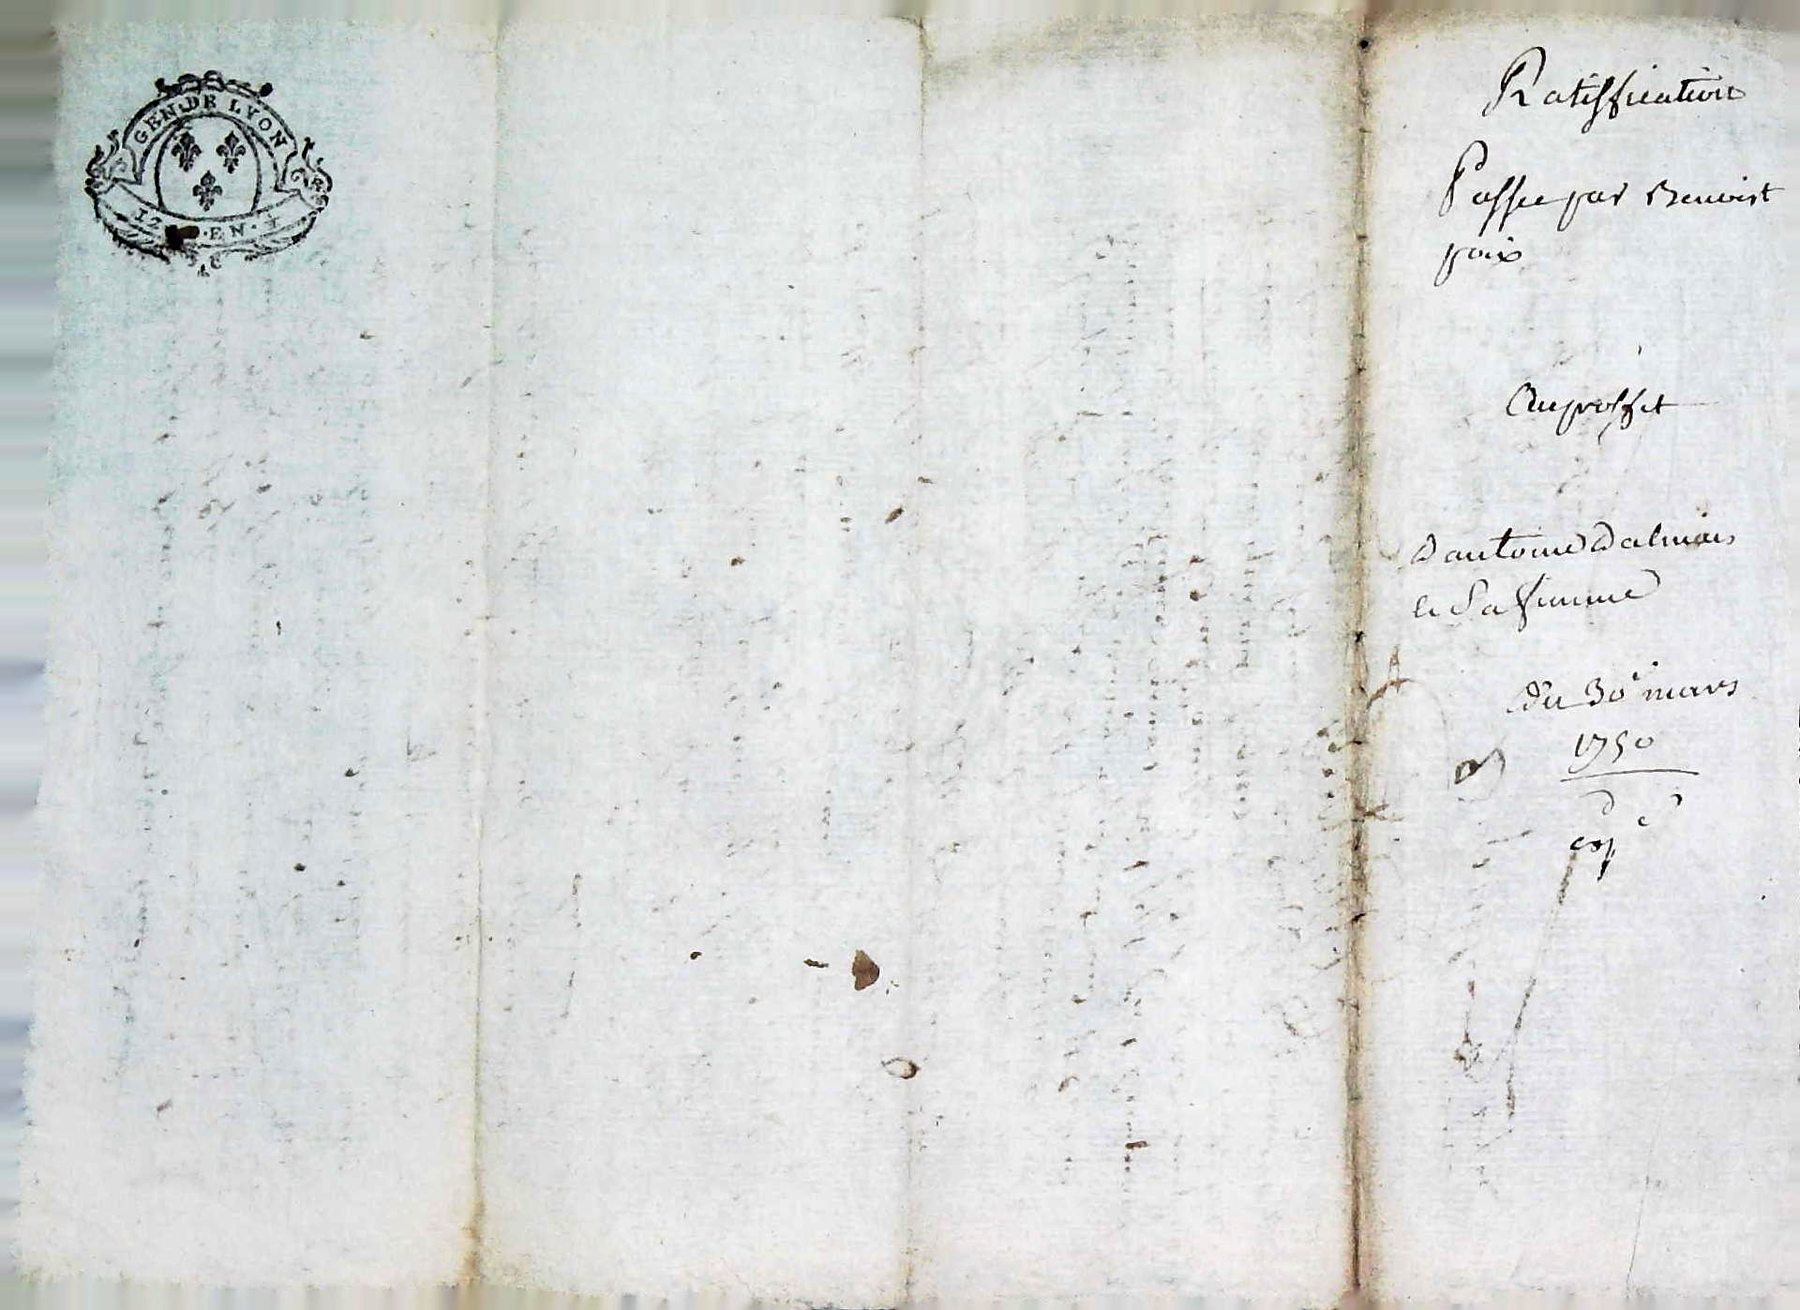 GEN. DE LYON
17 . EN . 4
Ratiffication
Passee par Benoist
paix
Au proffit
D'antoine Dalmais
et Sa femme
Du 30e mars
1750
cope